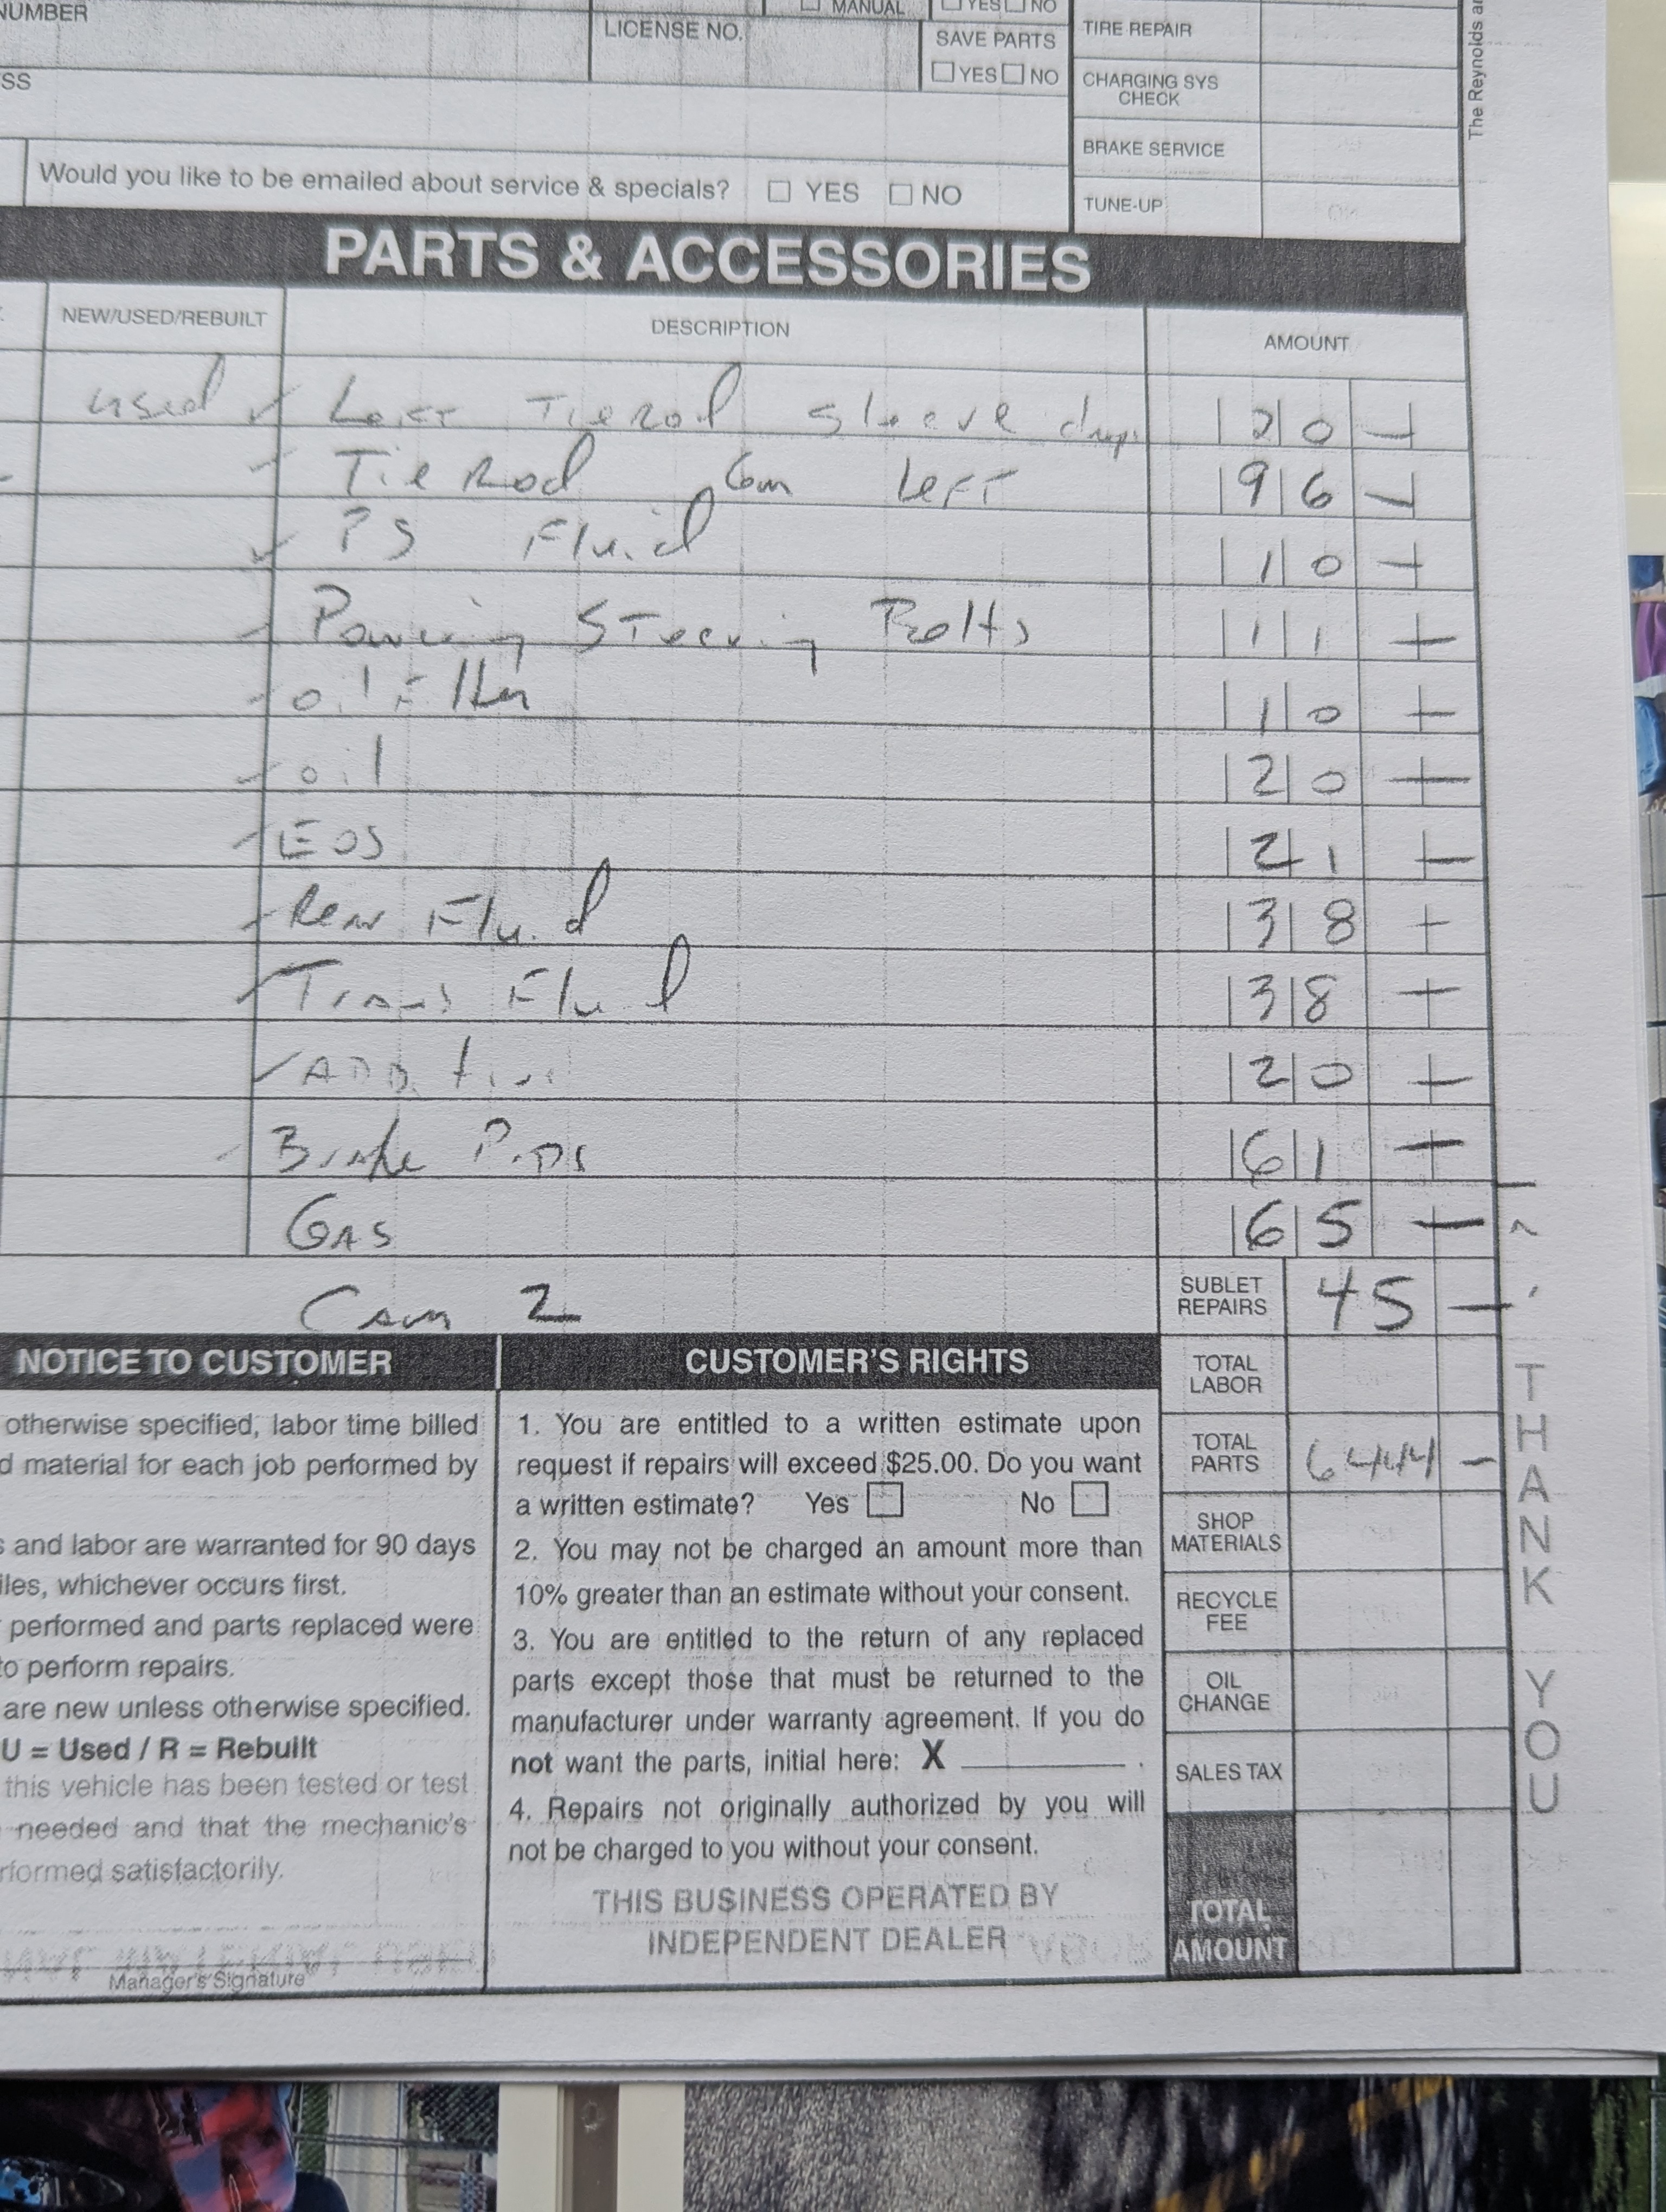 NUMBER
MANUAL
YES NO
LICENSE NO.
SAVE PARTS
YES NO
TIRE REPAIR
CHARGING SYS
CHECK
BRAKE SERVICE
TUNE-UP
The Reynolds
SS
Would you like to be emailed about service & specials? YES NO
PARTS & ACCESSORIES
NEW/USED/REBUILT DESCRIPTION AMOUNT
used Left Tie Rod Sleeve 20 -
Tie Rod Left 96 -
PS Fluid 10 -
Steering Bolts 11 -
oil Filter 10 -
oil 20 -
EOS 21 -
Rear Fluid 38 -
Trans Fluid 38 -
20 -
Brake 61 -
GAS 65 -
Cam 2
SUBLET
REPAIRS 45 -
TOTAL
LABOR
TOTAL
PARTS -
SHOP
MATERIALS
RECYCLE
FEE
OIL
CHANGE
SALES TAX
TOTAL
AMOUNT
THANK YOU
NOTICE TO CUSTOMER
otherwise specified, labor time billed
d material for each job performed by
s and labor are warranted for 90 days
iles, whichever occurs first.
performed and parts replaced were
to perform repairs.
are new unless otherwise specified.
U = Used / R = Rebuilt
this vehicle has been tested or test
needed and that the mechanic's
rformed satisfactorily.
Manager's Signature
CUSTOMER'S RIGHTS
1. You are entitled to a written estimate upon
request if repairs will exceed $25.00. Do you want
a written estimate? Yes No
2. You may not be charged an amount more than
10% greater than an estimate without your consent.
3. You are entitled to the return of any replaced
parts except those that must be returned to the
manufacturer under warranty agreement. If you do
not want the parts, initial here: X
4. Repairs not originally authorized by you will
not be charged to you without your consent.
THIS BUSINESS OPERATED BY
INDEPENDENT DEALER